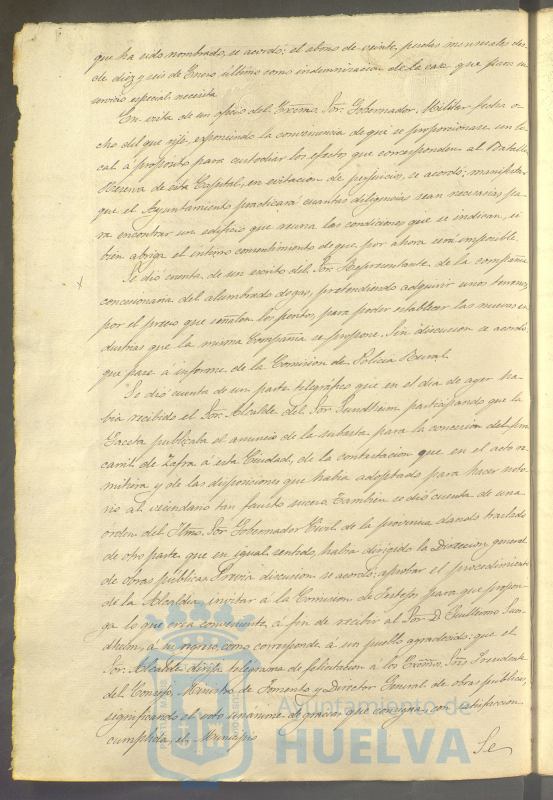 que ha sido nombrado, se acordó: el abono de veinte pesetas mensuales des-
de diez y seis de Enero último como indemnizacion de la casa que para su
servicio especial necesita
En vista de un oficio del Excmo. Sor. Gobernador Militar fecha o-
cho del que rije, exponiendo la conveniencia de que se proporcionase un lo-
cal á proposito para custodiar los efectos que corresponden al Batallon
Reserva de esta Capital, en evitacion de perjuicios, se acordó: manifestar
que el Ayuntamiento practicará cuantas diligencias sean necesarias pa-
ra encontrar un edificio que reuna las condiciones que se indican, si
bien abriga el íntimo convencimiento de que por ahora será imposible.
Se dió cuenta de un escrito del Sor. Representante de la compañia
concesionaria del alumbrado de gas, pretendiendo adquirir unos terrenos
por el precio que señalen los peritos, para poder establecer las nuevas in-
dustrias que la misma Compañia se propone. Sin discusion se acordó
que pase á informe de la Comision de Policia Rural.
Se dió cuenta de un parte telegráfico que en el dia de ayer ha-
bia recibido el Sor. Alcalde del Sor. Sundheim participando que la
Gaceta publicaba el anuncio de la subasta para la concesion del ferro-
carril de Zafra á esta Ciudad, de la contestacion que en el acto re-
mitiera y de las disposiciones que habia adoptado para hacer noto-
rio al vecindario tan fausto suceso. Tambien se dió cuenta de una
orden del Iltmo. Sor. Gobernador Civil de la provincia dando traslado
de otro parte que en igual sentido, habia dirigido la Direccion general
de obras públicas. Prévia discusion se acordó: aprobar el procedimiento
de la Alcaldia, invitar á la Comision de Festejos para que propon-
ga lo que crea conveniente, á fin de recibir al Sor. D. Guillermo Sun-
dheim, á su regreso, como corresponde á un pueblo agradecido: que el
Sor. Alcalde dirija telegrama de felicitacion á los Excmos. Sres. Presidente
del Consejo, Ministro de Fomento y Director General de obras publicas,
significando el voto unánime de gracias que consigna con satisfaccion
cumplida, el Municipio
Se
Ayuntamiento de
HUELVA